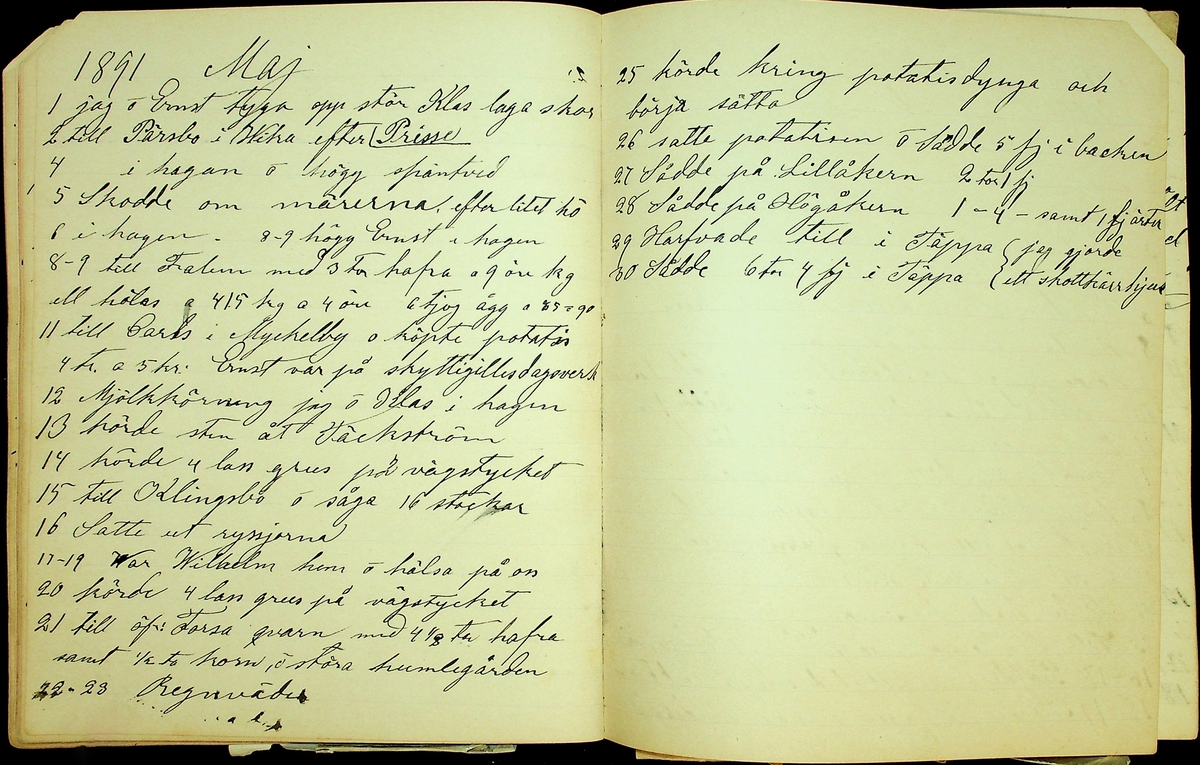 1891 Maj
1 jag o Ernst tyga opp stör Klas laga skor
2 till Pärsbo i Wika efter Prisse
4 i hagan o högg späntved
5 Skodde om märerna, efter litet hö
6 i hagen - 8-9 högg Ernst i hagen
8-9 till Falun med 3 tr hafra a 9 öre kg
ett hölas a 415 kg a 4 öre a tjog ägg a 85 = 90
11 till Carls i Myckelby o köpte potatis
4 tr. a 5 kr: Ernst var på skyttigillesdagsverk
12 Mjölkkörning jag o Klas i hagen
13 körde sten åt Täckström
14 körde 4 lass grus på vägstycket
15 till Klingsbo o såga 16 stockar
16 Satte ut ryssjorna
17-19 War Wilhelm hem o hälsa på oss
20 körde 4 lass grus på vägstycket
21 till öf: Forsa qvarn med 4 1/2 tr hafra
samt 1/2 tr korn, o störa humlegården
22-23 Regnväder
25 körde kring potatisdynga och
börja sätta
26 satte potatisen o Sådde 5 fj i backen
27 Sådde på Lillåkern 2 tor 1 fj
28 Sådde på Högåkern 1-4- samt 1 fjärdn
29 Harfvade till i Täppa (jag gjorde
30 Sådde 6 tr 4 fj i Täppa (ett skottkärrhjul